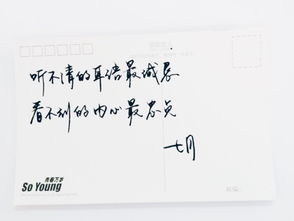 听不清的耳语最诚恳
看不到的内心最忠贞
七月
青春万岁
So Young